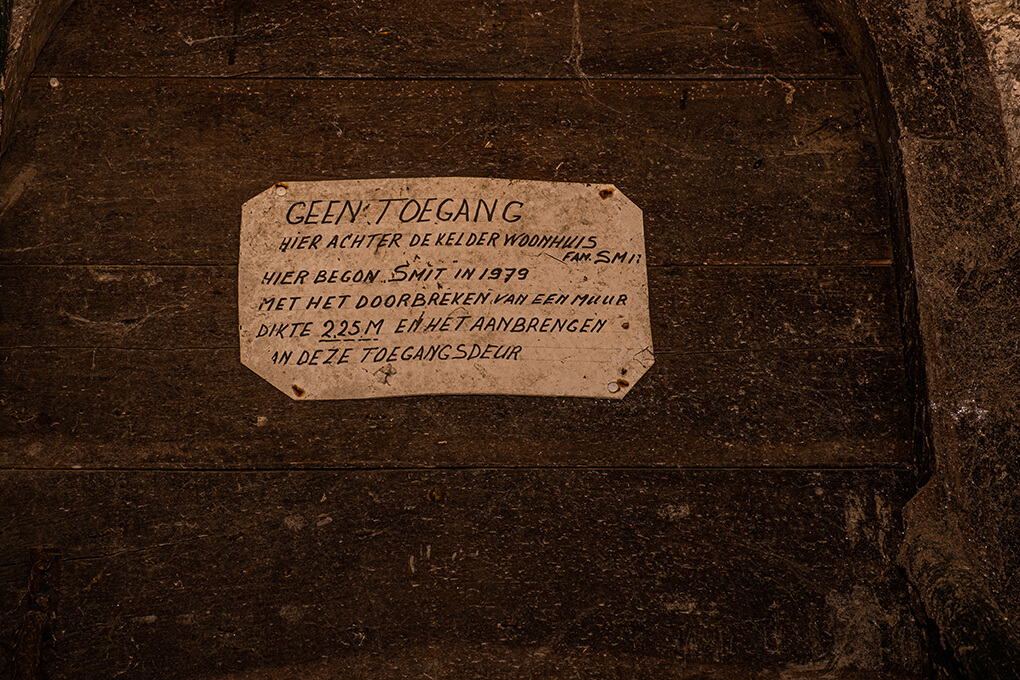 GEEN TOEGANG
HIER ACHTER DE KELDER WOONHUIS
FAM. SMIT
HIER BEGON SMIT IN 1979
MET HET DOORBREKEN VAN EEN MUUR
DIKTE 2.25 M EN HET AANBRENGEN
AN DEZE TOEGANGSDEUR